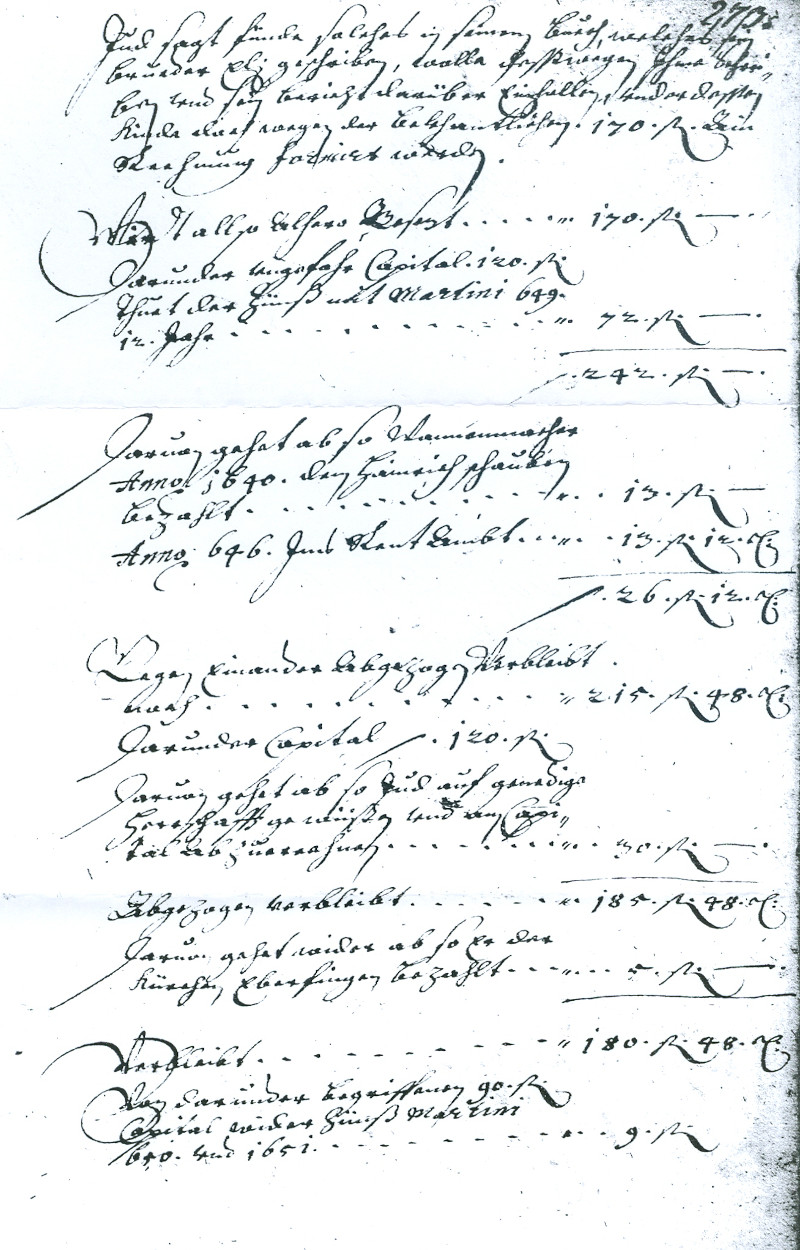 273
Jud sagt finde solches in seinem buech, welches sein
brueder Eli geschriben, wolle desswegen Ihme schrei-
ben und sein bericht darüber einhollen, under dessen
kinde das wegen der bekhantlichen 170. fl. Ain
Rechnung formiert werden.
Wirdt allso Alhero Gesezt . . . . . 170. fl. —
Darunder ungefahr Capital. 120. fl.
Thuet der Zinß mit Martini 649.
12. Jahr . . . . . . . . 72. fl. —
242. fl. —
Daruon gehet ab so Wannenmacher
Anno 1640. dem Hainrich schauben
bezahlt . . . . . . . . 13. fl. —
Anno. 646. Ins Rent Ambt . . . . 13. fl. 12. x.
26. fl. 12. x.
Gegen Einander Abgezogen Verbleibt
noch . . . . . . . . . 215. fl. 48. x.
Darunder Capital 120. fl.
Daruon gehet ab so Jud auf genedige
Herrschafft gewisen und am Capi-
tal Abzuerechnen . . . . . . 30. fl. —
Abgezogen verbleibt . . . . . 185. fl. 48. x.
Daruon gehet wider ab so Er der
Kürchen Eberfingen bezahlt . . . . 5. fl. —
Verbleibt . . . . . . . . 180. fl. 48. x.
Von darunder begriffenen 90. fl.
Capital wider Zinß Martini
650. und 1651. . . . . . . . 9. fl.